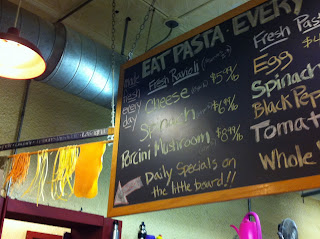 EAT PASTA EVERY
made
fresh
every
day
Fresh Ravioli
Cheese $5.49/lb
Spinach $6.49/lb
Porcini Mushroom $8.49/lb
Daily Specials on
the little board!!
Fresh Past
Egg $4
Spinach
Black Pep
Tomat
Whole